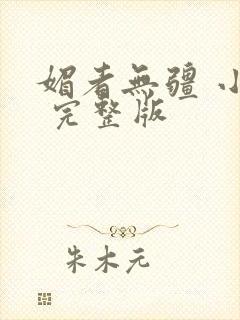 媚者無疆 小
完整版
朱木元